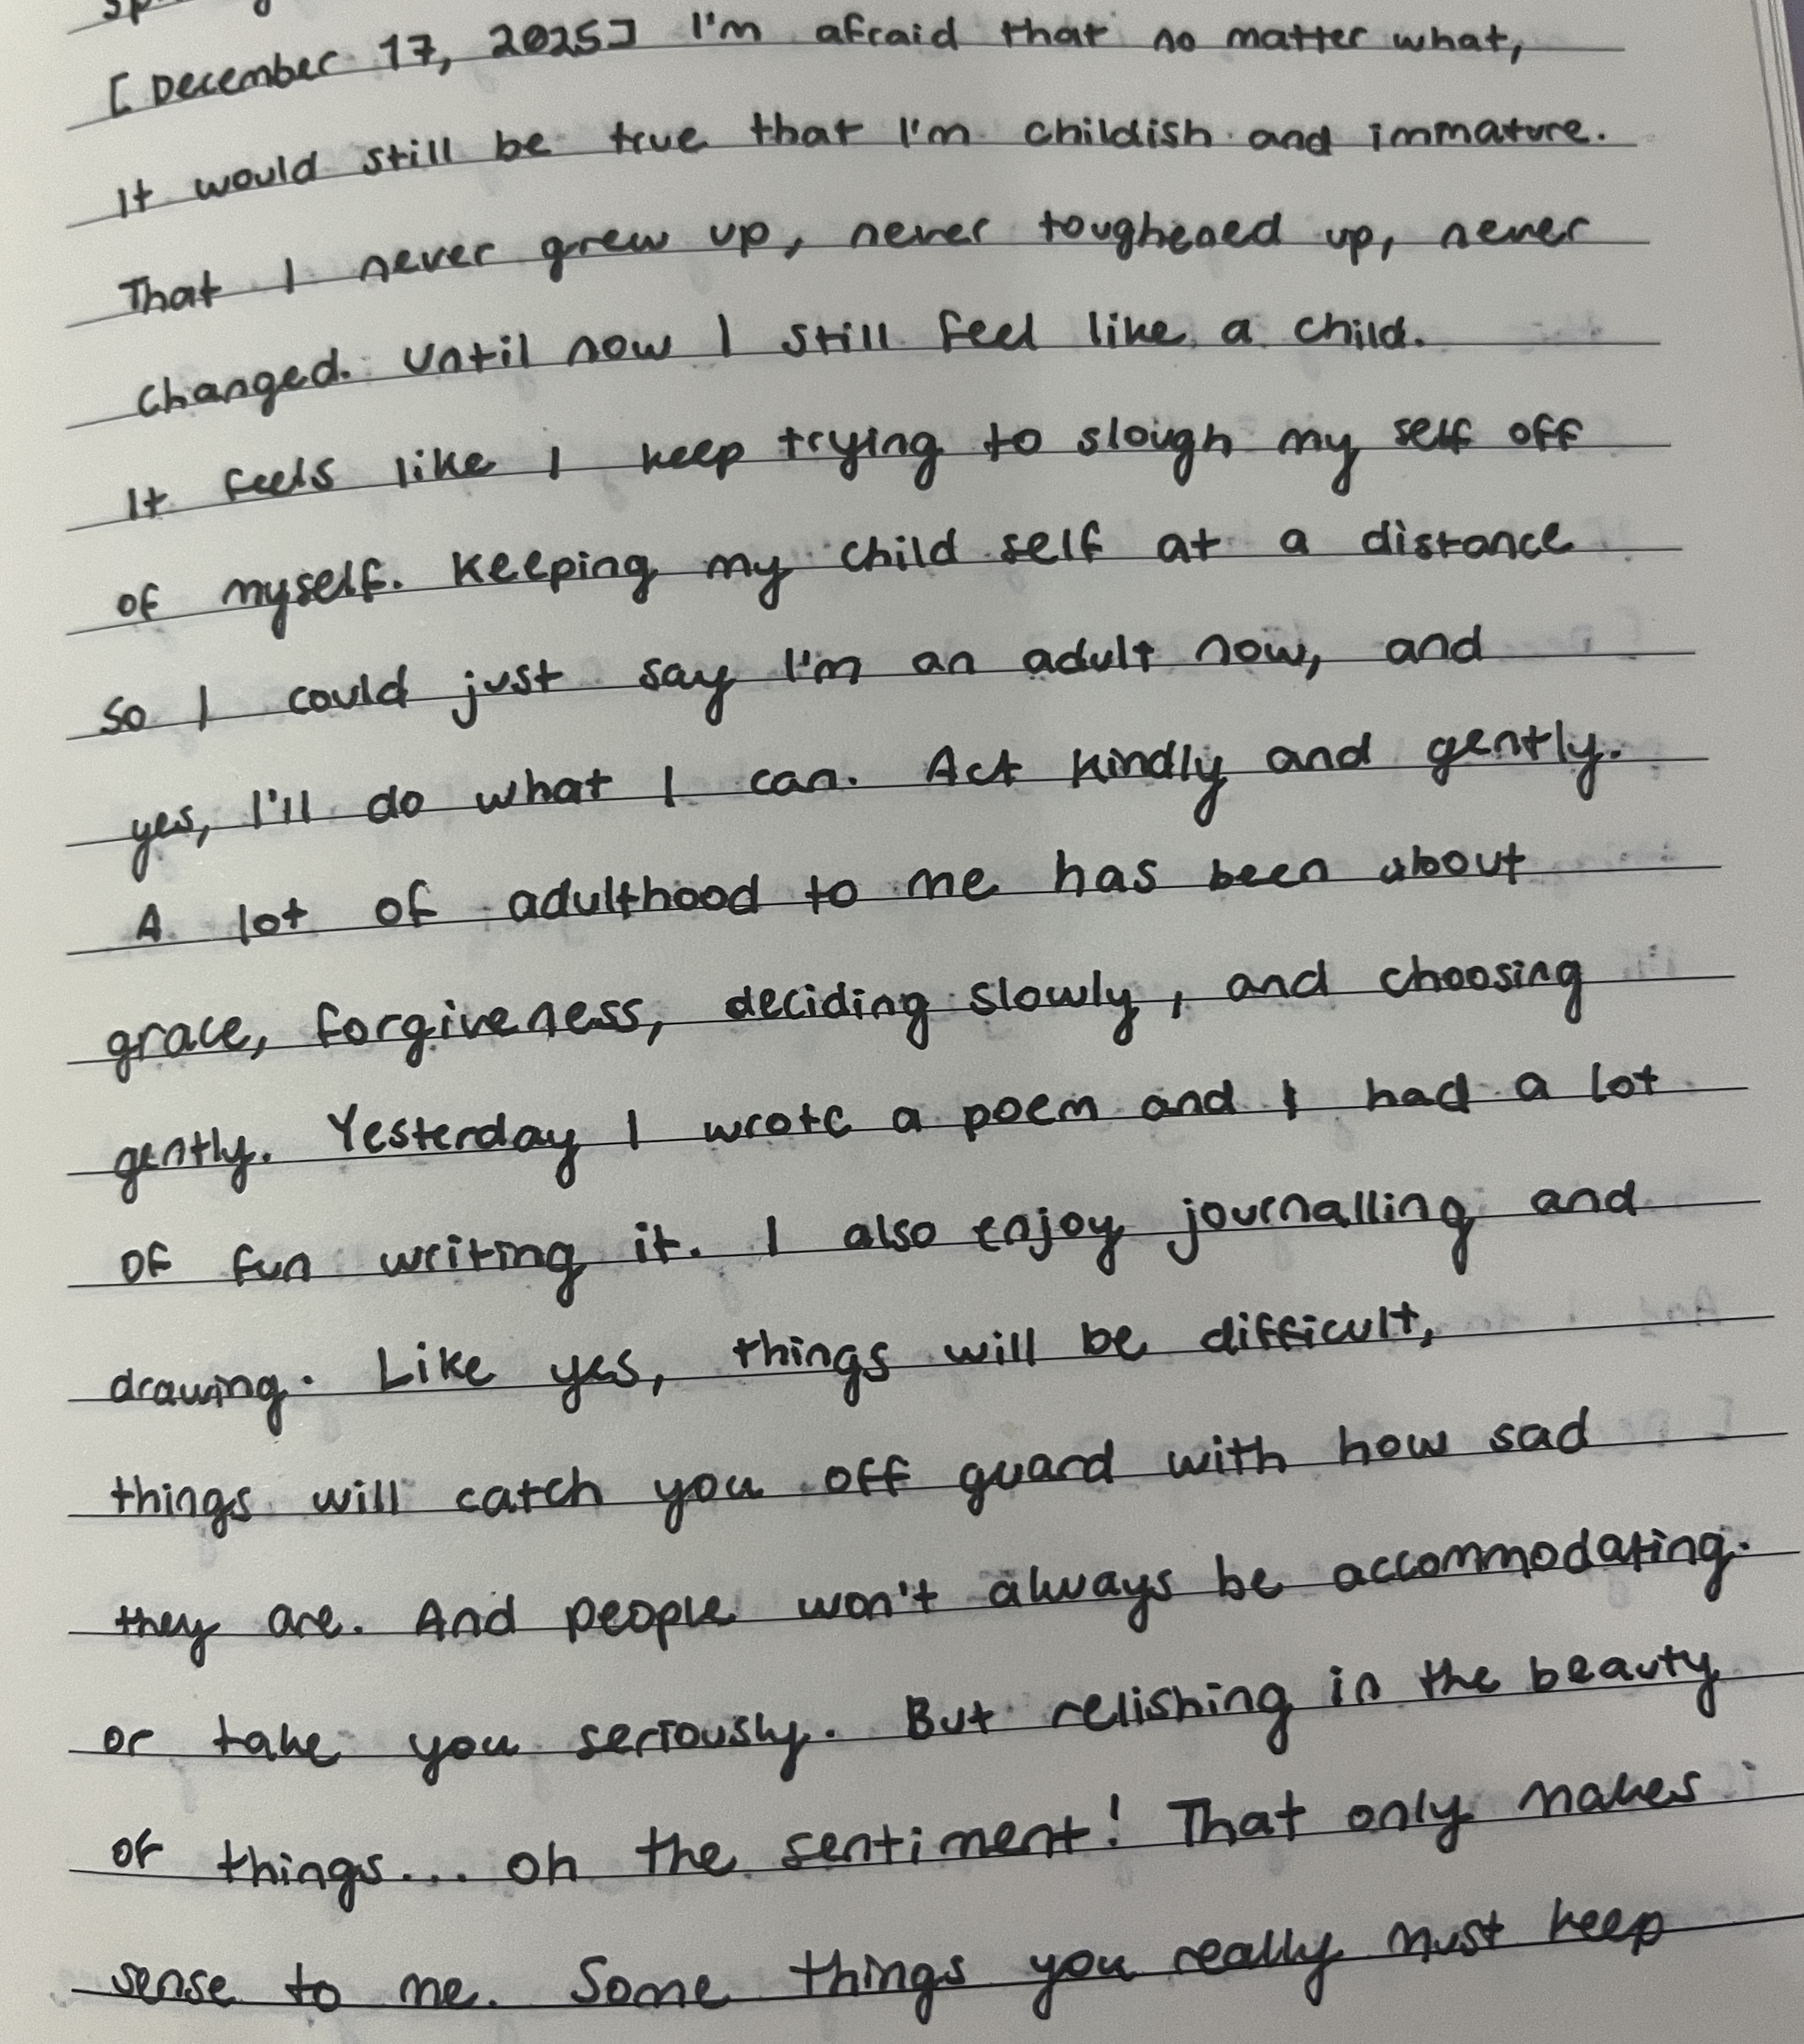 [December 17, 2025] I'm afraid that no matter what,
It would still be true that I'm childish and immature.
That I never grew up, never toughened up, never
changed. Until now I still feel like a child.
It feels like I keep trying to slough my self off
of myself. Keeping my child self at a distance
so I could just say I'm an adult now, and
yes, I'll do what I can. Act kindly and gently.
A lot of adulthood to me has been about
grace, forgiveness, deciding slowly, and choosing
gently. Yesterday I wrote a poem and I had a lot
of fun writing it. I also enjoy journalling and
drawing. Like yes, things will be difficult,
things will catch you off guard with how sad
they are. And people won't always be accommodating.
or take you seriously. But relishing in the beauty
of things... oh the sentiment! That only makes
sense to me. Some things you really must keep